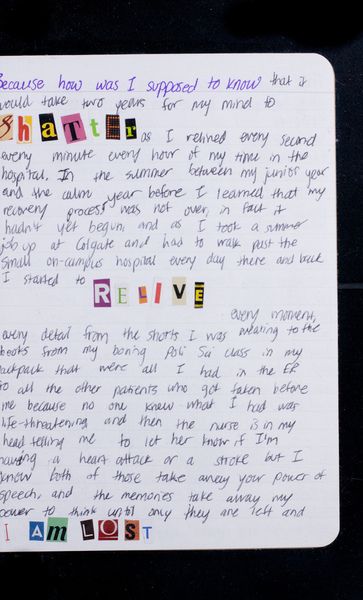 Because how was I supposed to know that it
would take two years for my mind to
SHATTER as I relived every second
every minute every hour of my time in the
hospital. In the summer between my junior year
and the calm year before I learned that my
recovery process was not over, in fact it
hadn't yet begun, and as I took a summer
job up at Colgate and had to walk past the
small on-campus hospital every day there and back
I started to
RELIVE
every moment,
every detail from the shorts I was wearing to the
books from my boring Poli Sci class in my
backpack that were all I had in the ER
to all the other patients who got taken before
me because no one knew what I had was
life-threatening and then the nurse is in my
head telling me to let her know if I'm
having a heart attack or a stroke but I
know both of those take away your power of
speech, and the memories take away my
power to think until only they are left and
I AM LOST